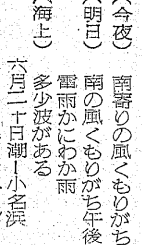 (今夜) 南寄りの風くもりがち
(明日) 南の風くもりがち午後
雷雨かにわか雨
(海上) 多少波がある
六月二十日潮―小名浜